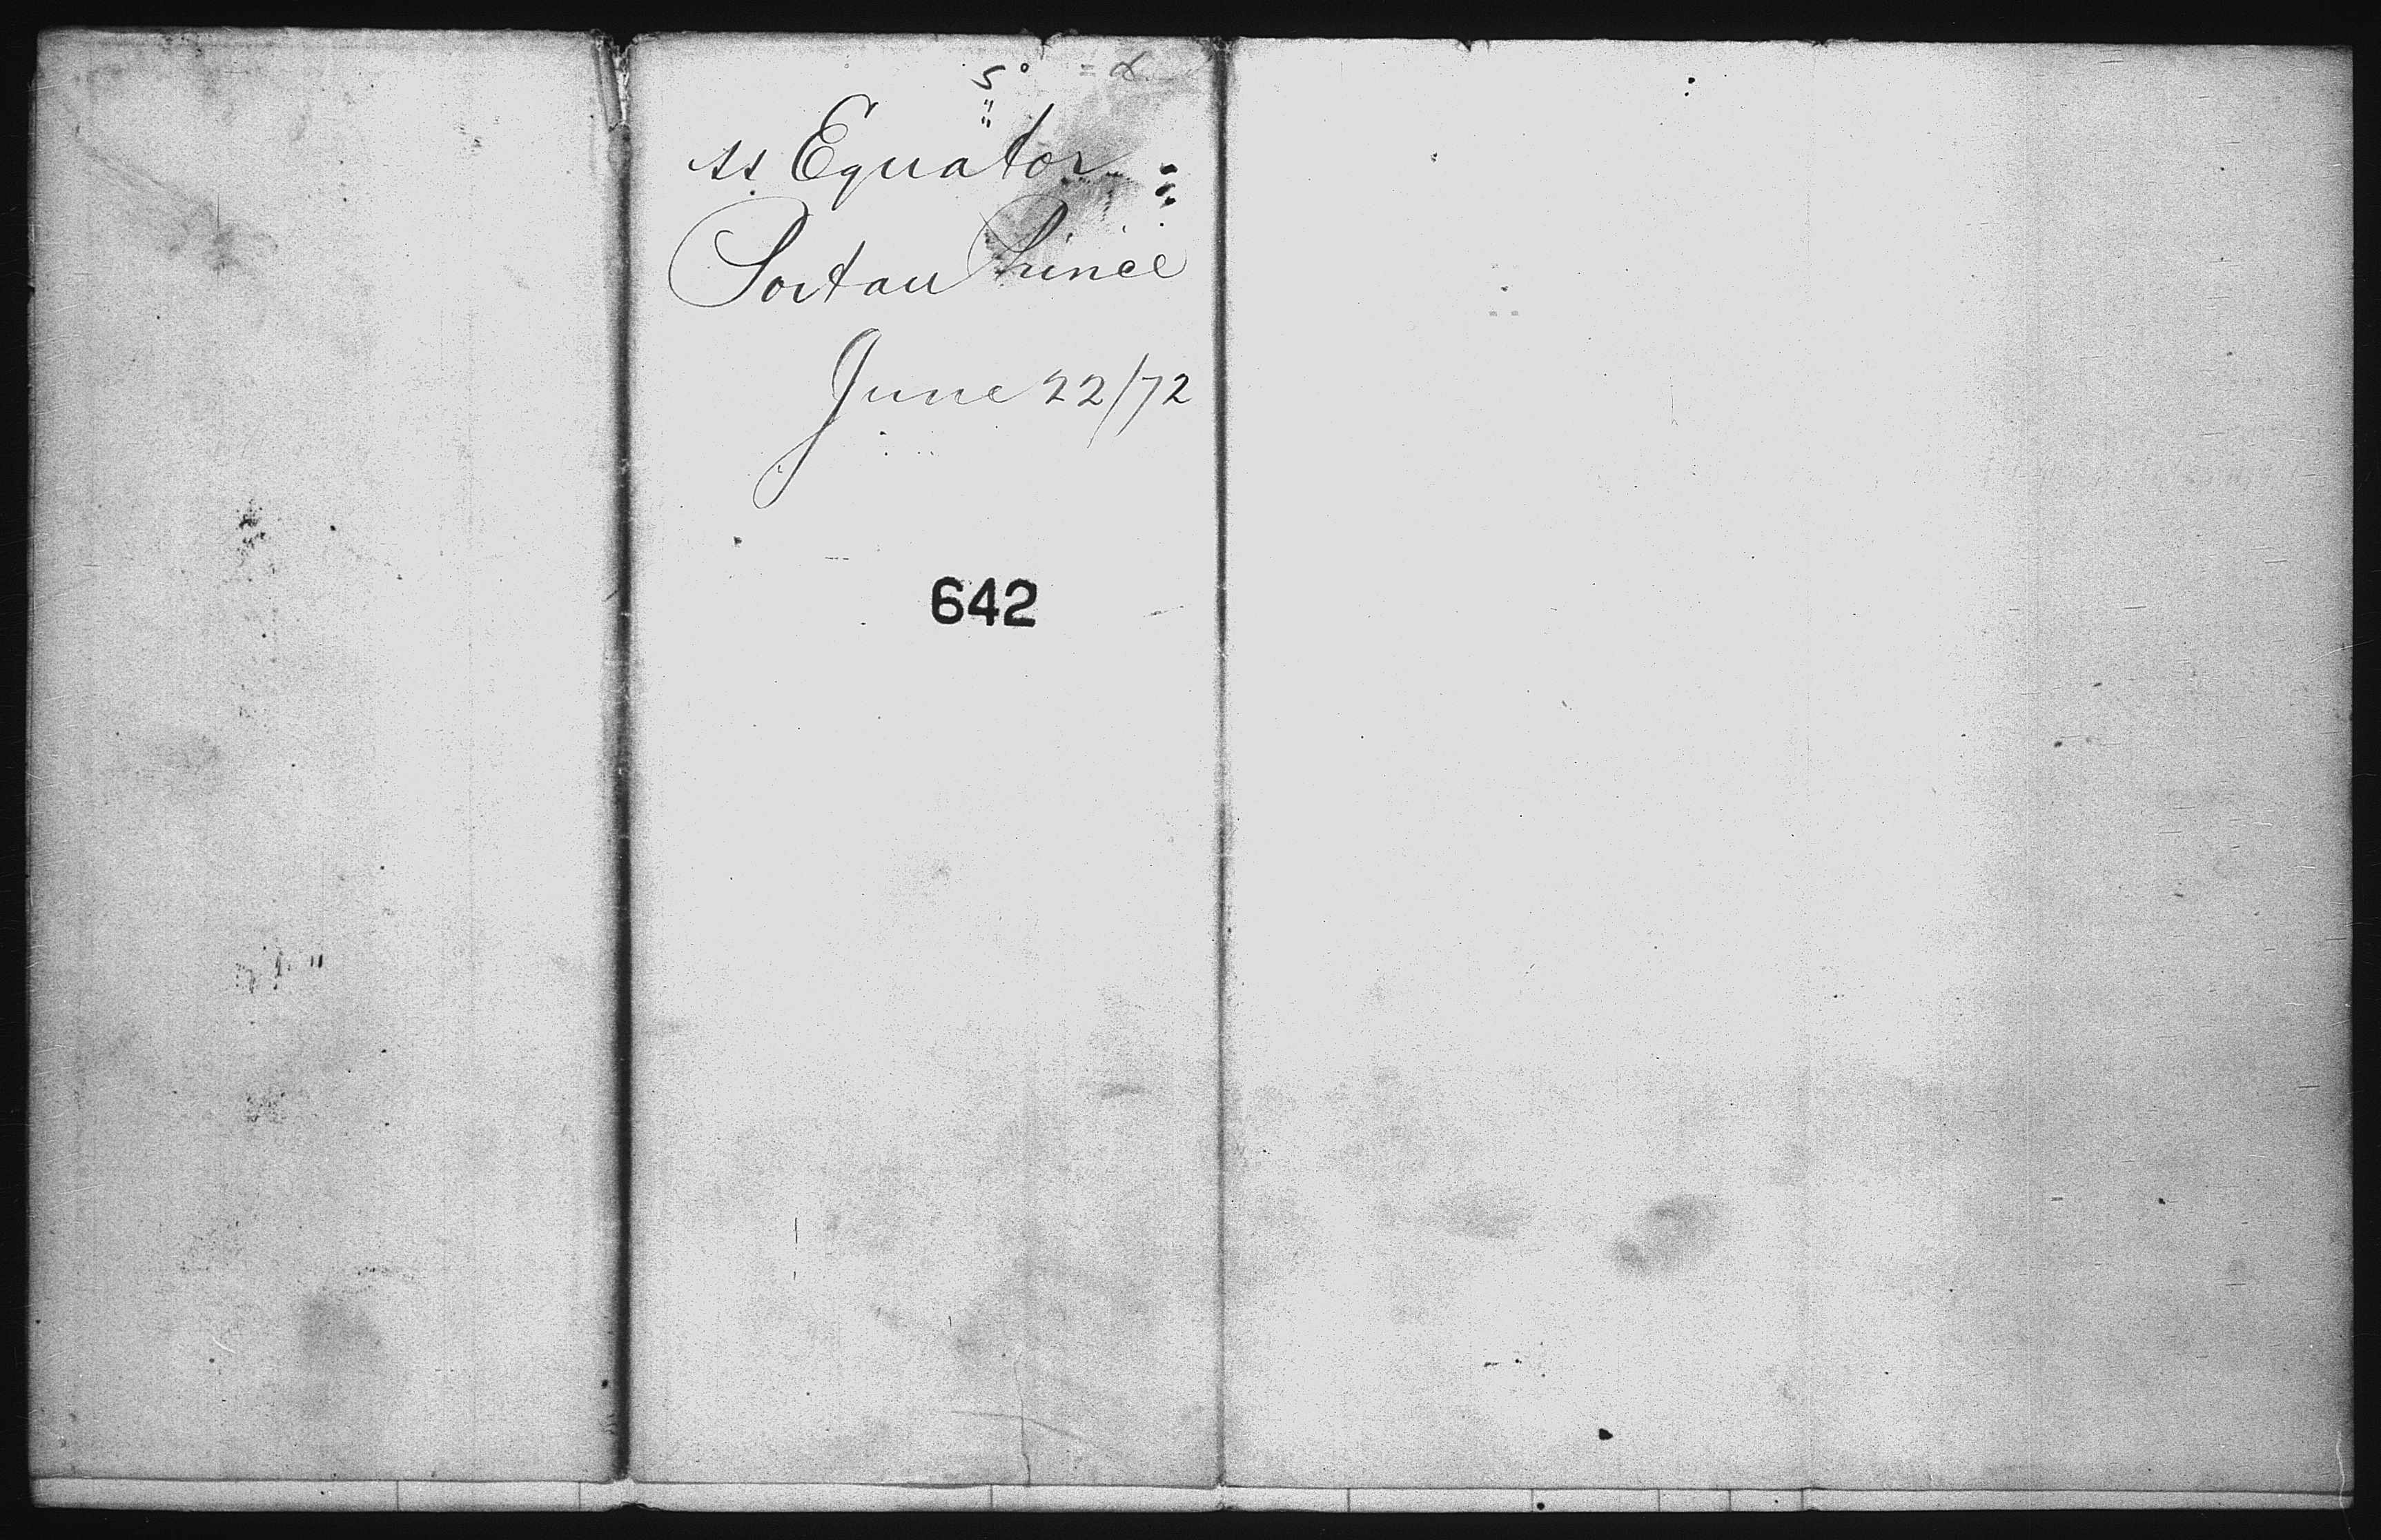 ss Equator
Port au Prince
June 22/72
642